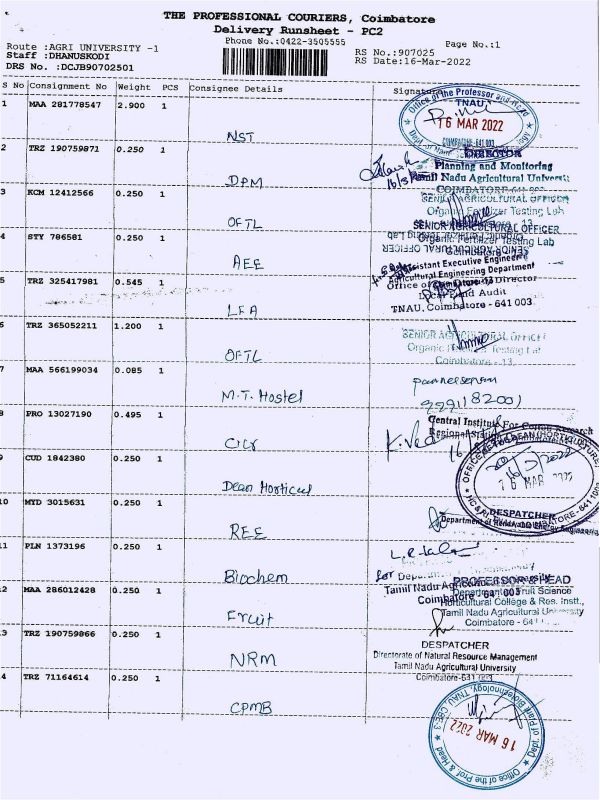 THE PROFESSIONAL COURIERS, Coimbatore
Delivery Runsheet - PC2
Phone No.:0422-3505555
Page No.:1
Route :AGRI UNIVERSITY -1
Staff :DHANUSKODI
DRS No. :DCJB90702501
RS No.:907025
RS Date:16-Mar-2022
S No Consignment No Weight PCS Consignee Details Signature
1 MAA 281778547 2.900 1
NST
TNAU
16 MAR 2022
2 TRZ 190759871 0.250 1
DPM
DIRECTOR
Planning and Monitoring
Tamil Nadu Agricultural University
COIMBATORE-641 003
3 KCM 12412566 0.250 1
OFTL
SENIOR AGRICULTURAL OFFICER
Organic Fertilizer Testing Lab
Coimbatore - 13
4 STY 786581 0.250 1
AEE
SENIOR AGRICULTURAL OFFICER
Organic Fertilizer Testing Lab
Assistant Executive Engineer
Agricultural Engineering Department
5 TRZ 325417981 0.545 1
LFA
Local Fund Audit
TNAU, Coimbatore - 641 003
6 TRZ 365052211 1.200 1
OFTL
SENIOR AGRICULTURAL OFFICER
Organic Fertilizer Testing Lab
Coimbatore - 13.
7 MAA 566199034 0.085 1
M.T. Hostel
8 PRO 13027190 0.495 1
CICR
Central Institute For Cotton Research
Regional Station
9 CUD 1842380 0.250 1
Dean Horticul
16 MAR 2022
10 MYD 3015631 0.250 1
REE
DESPATCHER
Department of Renewable Energy Engineering
11 PLN 1373196 0.250 1
Biochem
for
Tamil Nadu Agricultural University
Coimbatore - 641 003
12 MAA 286012428 0.250 1
Fruit
PROFESSOR & HEAD
Department of Fruit Science
Horticultural College & Res. Instt.,
Tamil Nadu Agricultural University
Coimbatore - 641
13 TRZ 190759866 0.250 1
NRM
DESPATCHER
Directorate of Natural Resource Management
Tamil Nadu Agricultural University
Coimbatore-641 003
14 TRZ 71164614 0.250 1
CPMB
Office of the Prof. & Head
Dept. of Plant Biotechnology, TNAU, CBE-3
16 MAR 2022